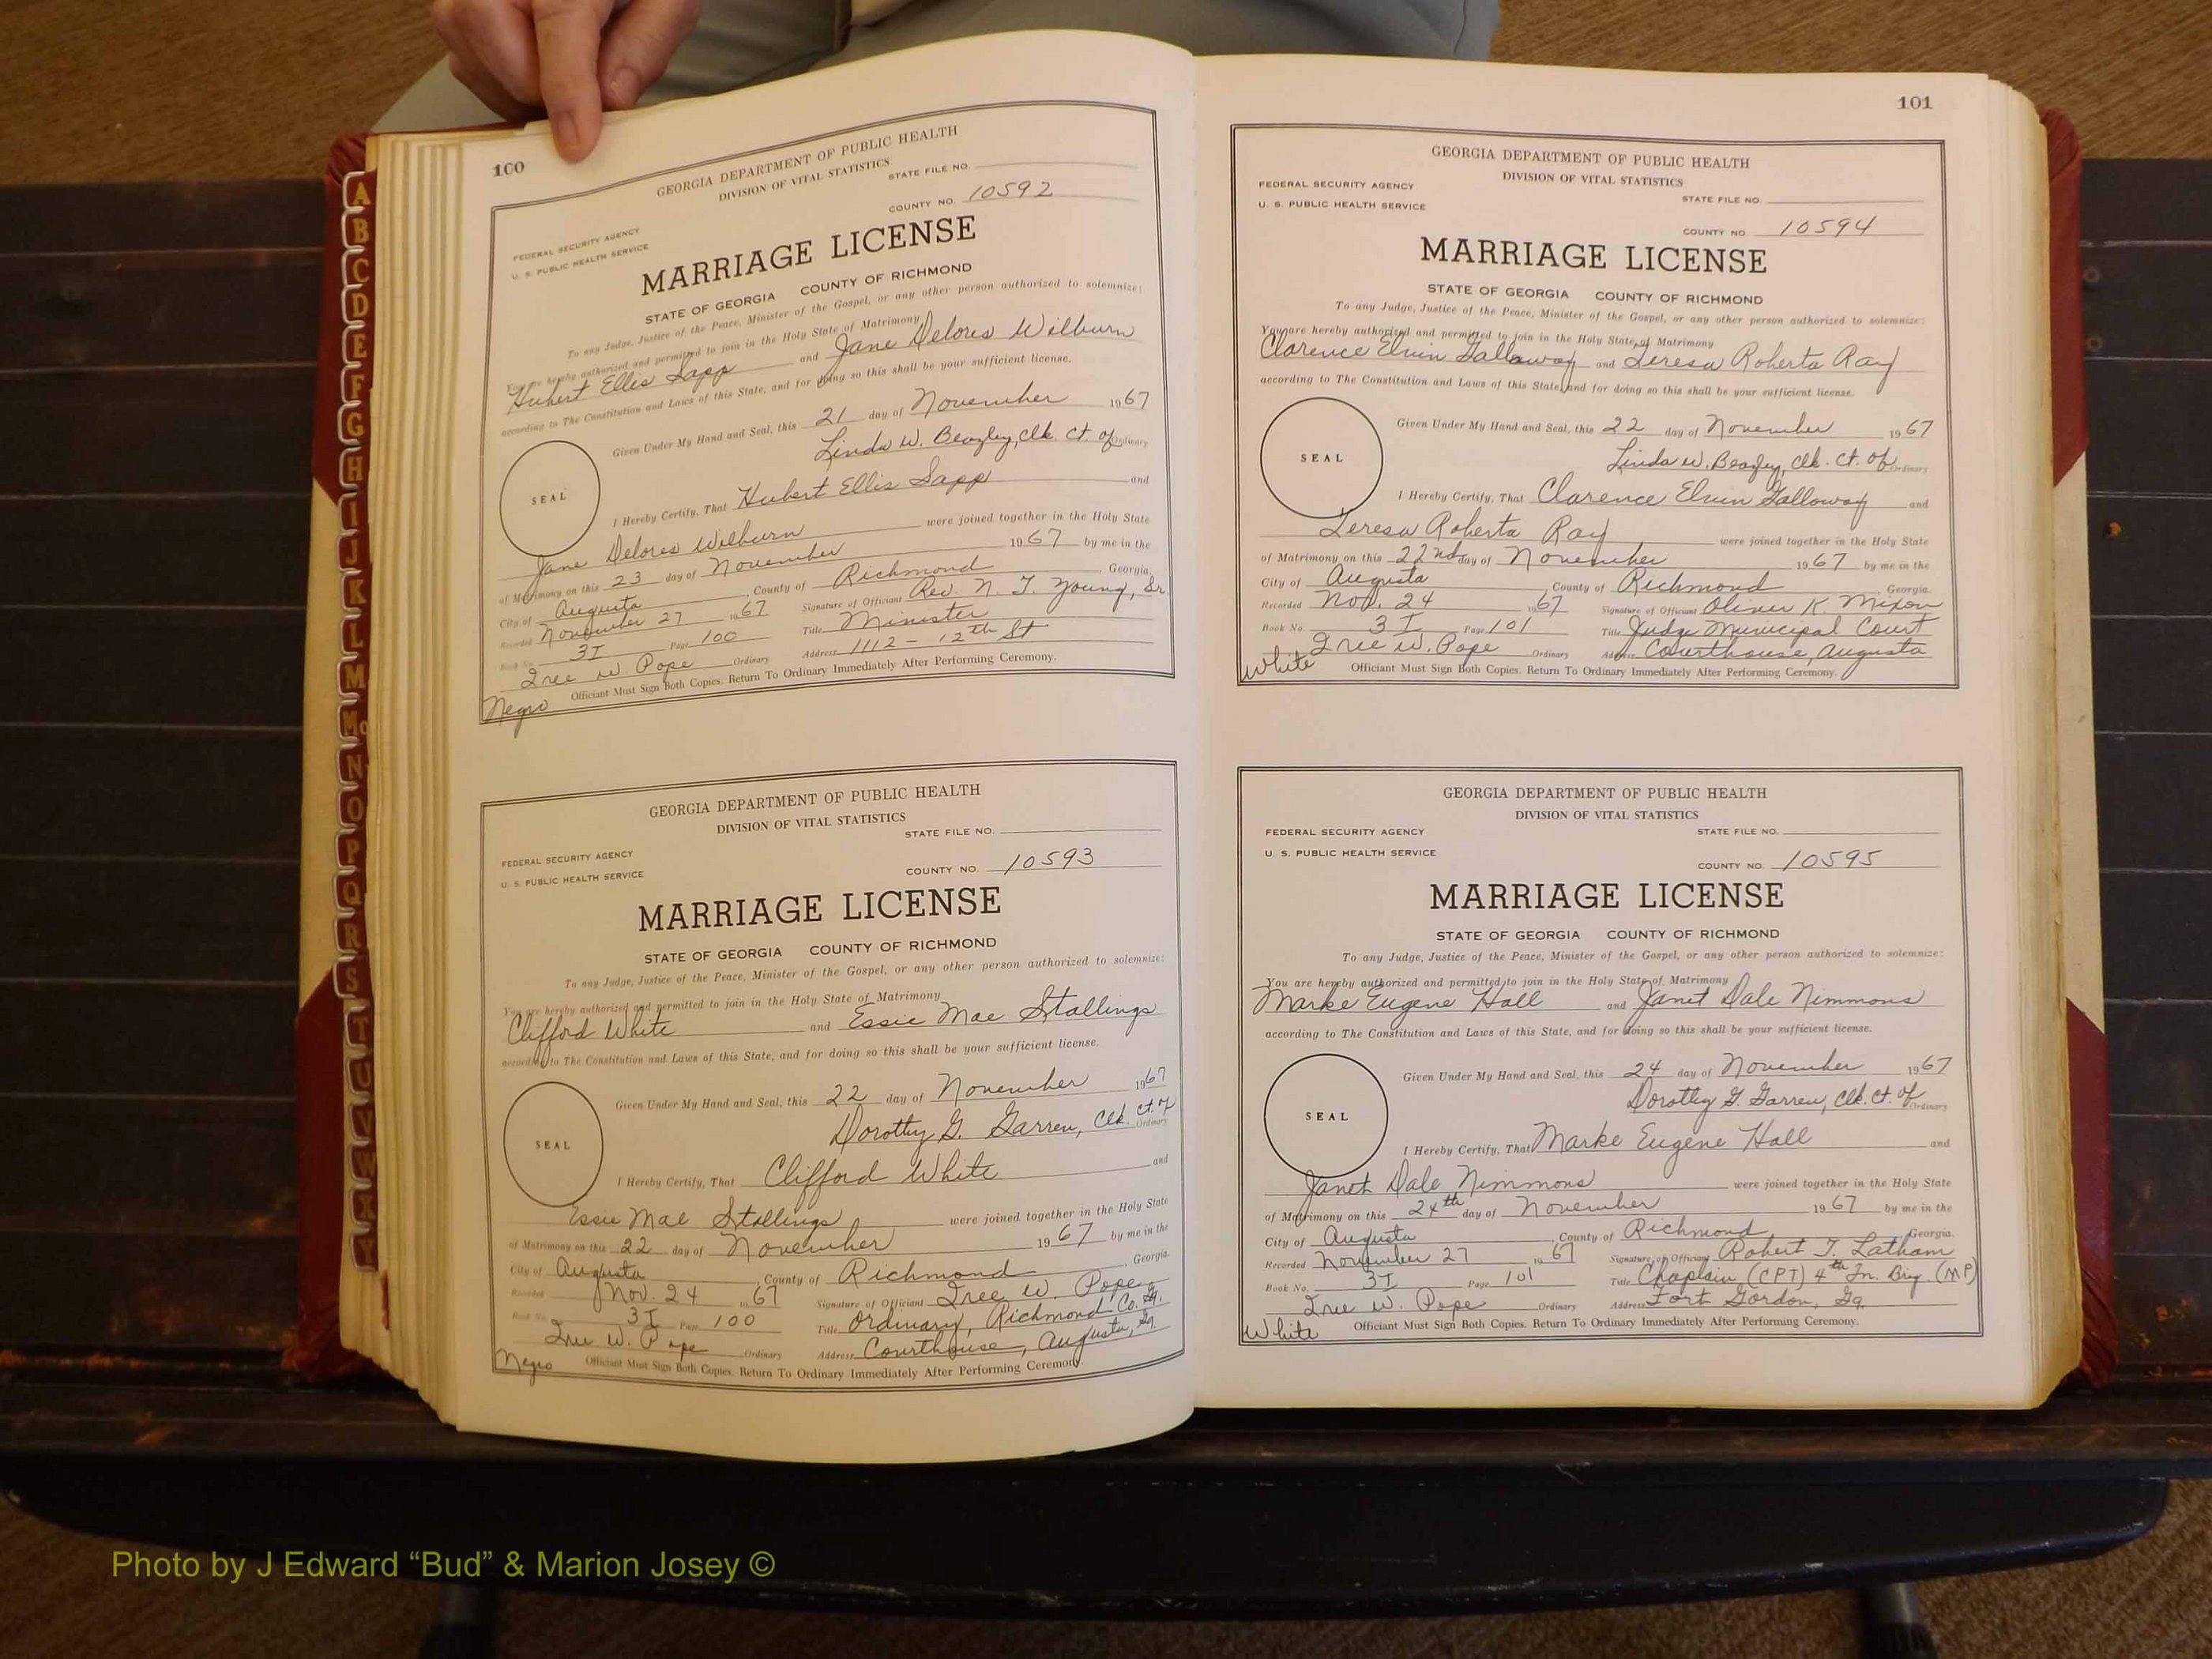 A
B
C
D
E
F
G
H
I
J
K
L
M
Mc
N
O
P
Q
R
S
T
U
V
W
X
Y
100
GEORGIA DEPARTMENT OF PUBLIC HEALTH
DIVISION OF VITAL STATISTICS
STATE FILE NO.
COUNTY NO. 10592
FEDERAL SECURITY AGENCY
U. S. PUBLIC HEALTH SERVICE
MARRIAGE LICENSE
STATE OF GEORGIA COUNTY OF RICHMOND
To any Judge, Justice of the Peace, Minister of the Gospel, or any other person authorized to solemnize:
You are hereby authorized and permitted to join in the Holy State of Matrimony
Hubert Ellis Sapp and Jane Delores Wilburn
according to The Constitution and Laws of this State, and for doing so this shall be your sufficient license.
Given Under My Hand and Seal, this 21 day of November 1967
Linda W. Beazley, Clk. Ct. of Ordinary
SEAL
I Hereby Certify, That Hubert Ellis Sapp and
Jane Delores Wilburn were joined together in the Holy State
of Matrimony on this 23 day of November 1967 by me in the
City of Augusta, County of Richmond, Georgia.
Recorded November 27 1967 Signature of Officiant Rev. N. T. Young, Sr.
Book No. 3I Page 100 Title Minister
Iree W. Pope Ordinary Address 1112 - 12th St
Negro Officiant Must Sign Both Copies. Return To Ordinary Immediately After Performing Ceremony.
GEORGIA DEPARTMENT OF PUBLIC HEALTH
DIVISION OF VITAL STATISTICS
STATE FILE NO.
FEDERAL SECURITY AGENCY
U. S. PUBLIC HEALTH SERVICE
COUNTY NO. 10593
MARRIAGE LICENSE
STATE OF GEORGIA COUNTY OF RICHMOND
To any Judge, Justice of the Peace, Minister of the Gospel, or any other person authorized to solemnize:
You are hereby authorized and permitted to join in the Holy State of Matrimony
Clifford White and Essie Mae Stallings
according to The Constitution and Laws of this State, and for doing so this shall be your sufficient license.
Given Under My Hand and Seal, this 22 day of November 1967
Dorothy G. Garren, Clk. Ct. of Ordinary
SEAL
I Hereby Certify, That Clifford White and
Essie Mae Stallings were joined together in the Holy State
of Matrimony on this 22 day of November 1967 by me in the
City of Augusta, County of Richmond, Georgia.
Recorded Nov. 24 1967 Signature of Officiant Iree W. Pope
Book No. 3I Page 100 Title Ordinary, Richmond Co. Ga.
Iree W. Pope Ordinary Address Courthouse, Augusta, Ga.
Negro Officiant Must Sign Both Copies. Return To Ordinary Immediately After Performing Ceremony.
101
GEORGIA DEPARTMENT OF PUBLIC HEALTH
DIVISION OF VITAL STATISTICS
FEDERAL SECURITY AGENCY
U. S. PUBLIC HEALTH SERVICE
STATE FILE NO.
COUNTY NO. 10594
MARRIAGE LICENSE
STATE OF GEORGIA COUNTY OF RICHMOND
To any Judge, Justice of the Peace, Minister of the Gospel, or any other person authorized to solemnize:
You are hereby authorized and permitted to join in the Holy State of Matrimony
Clarence Elvin Galloway and Teresa Roberta Ray
according to The Constitution and Laws of this State, and for doing so this shall be your sufficient license.
Given Under My Hand and Seal, this 22 day of November 1967
Linda W. Beazley, Clk. Ct. of Ordinary
SEAL
I Hereby Certify, That Clarence Elvin Galloway and
Teresa Roberta Ray were joined together in the Holy State
of Matrimony on this 22nd day of November 1967 by me in the
City of Augusta, County of Richmond Georgia.
Recorded Nov. 24 1967 Signature of Officiant Oliver K. Mixon
Book No. 3I Page 101 Title Judge Municipal Court
Iree W. Pope Ordinary Address Courthouse, Augusta
White Officiant Must Sign Both Copies. Return To Ordinary Immediately After Performing Ceremony.
GEORGIA DEPARTMENT OF PUBLIC HEALTH
DIVISION OF VITAL STATISTICS
FEDERAL SECURITY AGENCY
STATE FILE NO.
U. S. PUBLIC HEALTH SERVICE
COUNTY NO. 10595
MARRIAGE LICENSE
STATE OF GEORGIA COUNTY OF RICHMOND
To any Judge, Justice of the Peace, Minister of the Gospel, or any other person authorized to solemnize:
You are hereby authorized and permitted to join in the Holy State of Matrimony
Marke Eugene Hall and Janet Dale Nimmons
according to The Constitution and Laws of this State, and for doing so this shall be your sufficient license.
Given Under My Hand and Seal, this 24 day of November 1967
Dorothy G. Garren, Clk. Ct. of Ordinary
SEAL
I Hereby Certify, That Marke Eugene Hall and
Janet Dale Nimmons were joined together in the Holy State
of Matrimony on this 24th day of November 1967 by me in the
City of Augusta, County of Richmond, Georgia.
Recorded November 27 1967 Signature of Officiant Robert T. Latham
Book No. 3I Page 101 Title Chaplain, (CPT) 4th Tn. Brig. (MP)
Iree W. Pope Ordinary Address Fort Gordon, Ga.
White Officiant Must Sign Both Copies. Return To Ordinary Immediately After Performing Ceremony.
Photo by J Edward “Bud” & Marion Josey ©